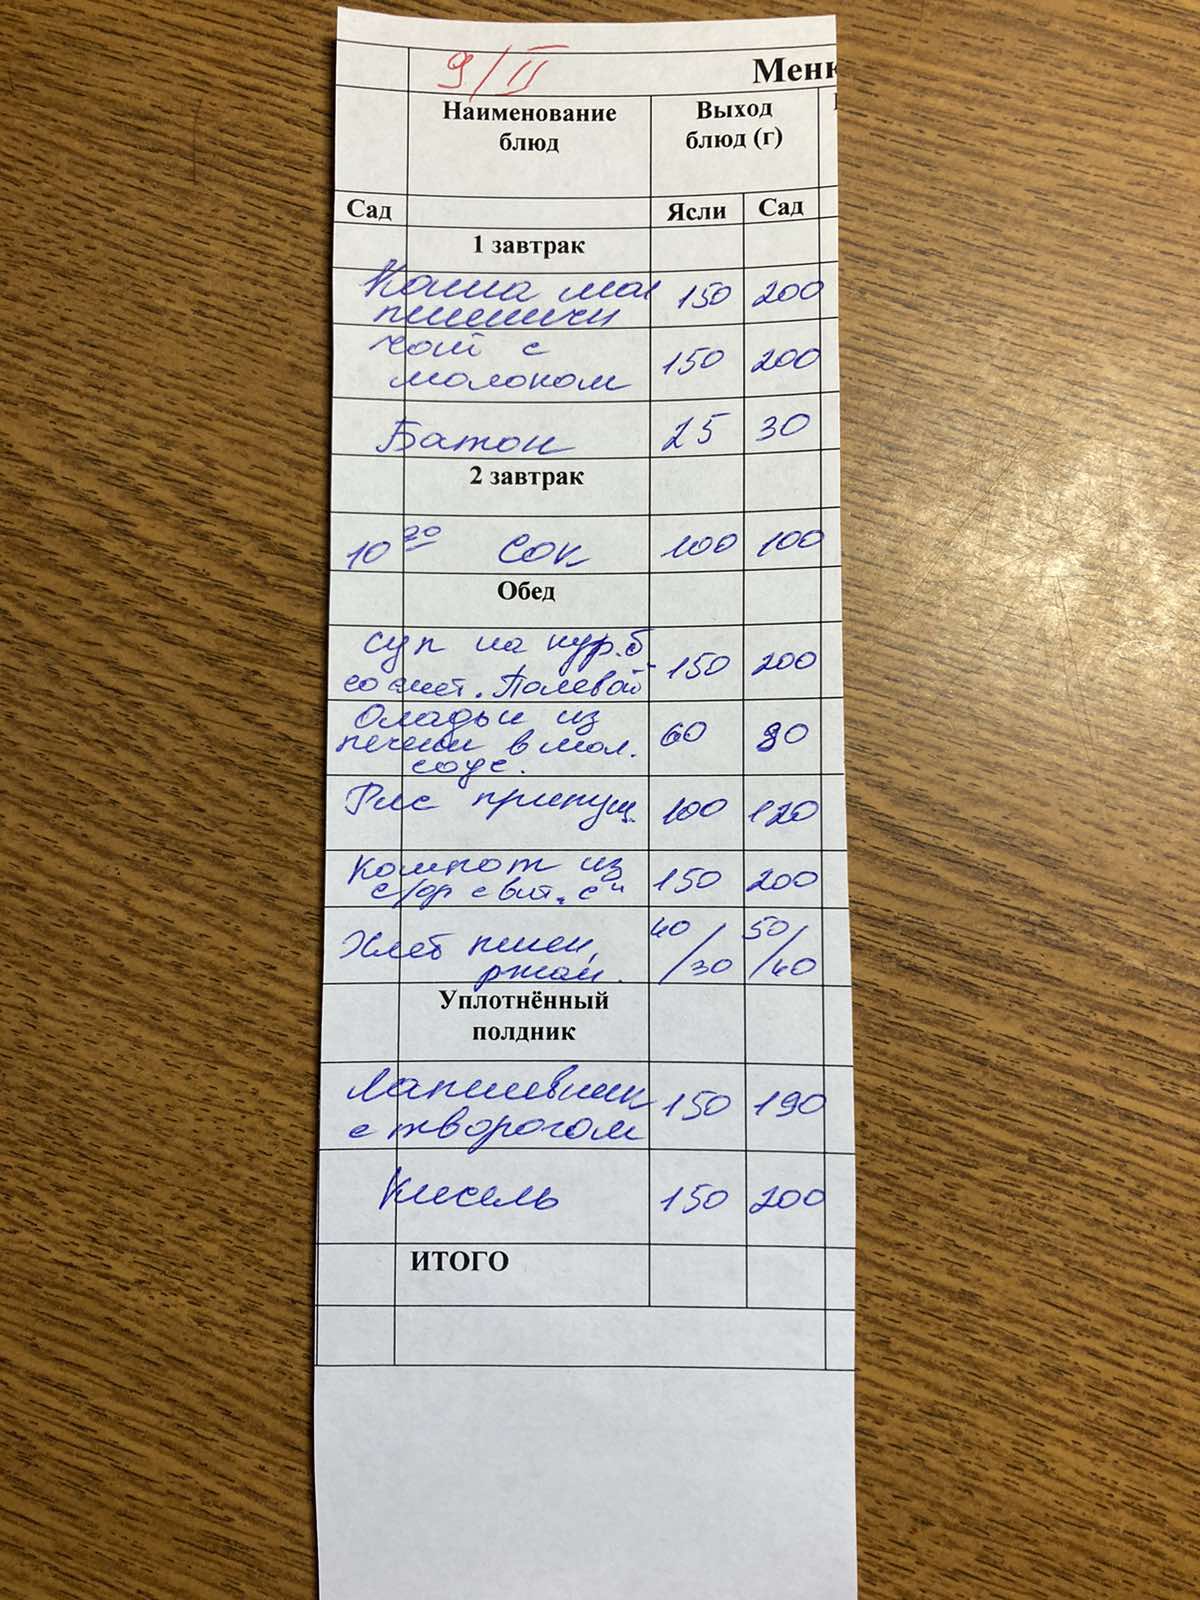 9/II
Меню
Наименование
блюд
Выход
блюд (г)
Сад
Ясли Сад
1 завтрак
Каша мол 150 200
пшеничн
Чай с
молоком 150 200
Батон 25 30
2 завтрак
10 30 Сок 100 100
Обед
Суп на кур.б
со смет. Полевой 150 200
Оладьи из
печени в мол. 60 80
соус.
Рис припущ. 100 120
Компот из
с/фр с вит. "С" 150 200
Хлеб пшен, 40/30 50/40
ржан.
Уплотнённый
полдник
Лапшевник 150 190
с творогом
Кисель 150 200
ИТОГО